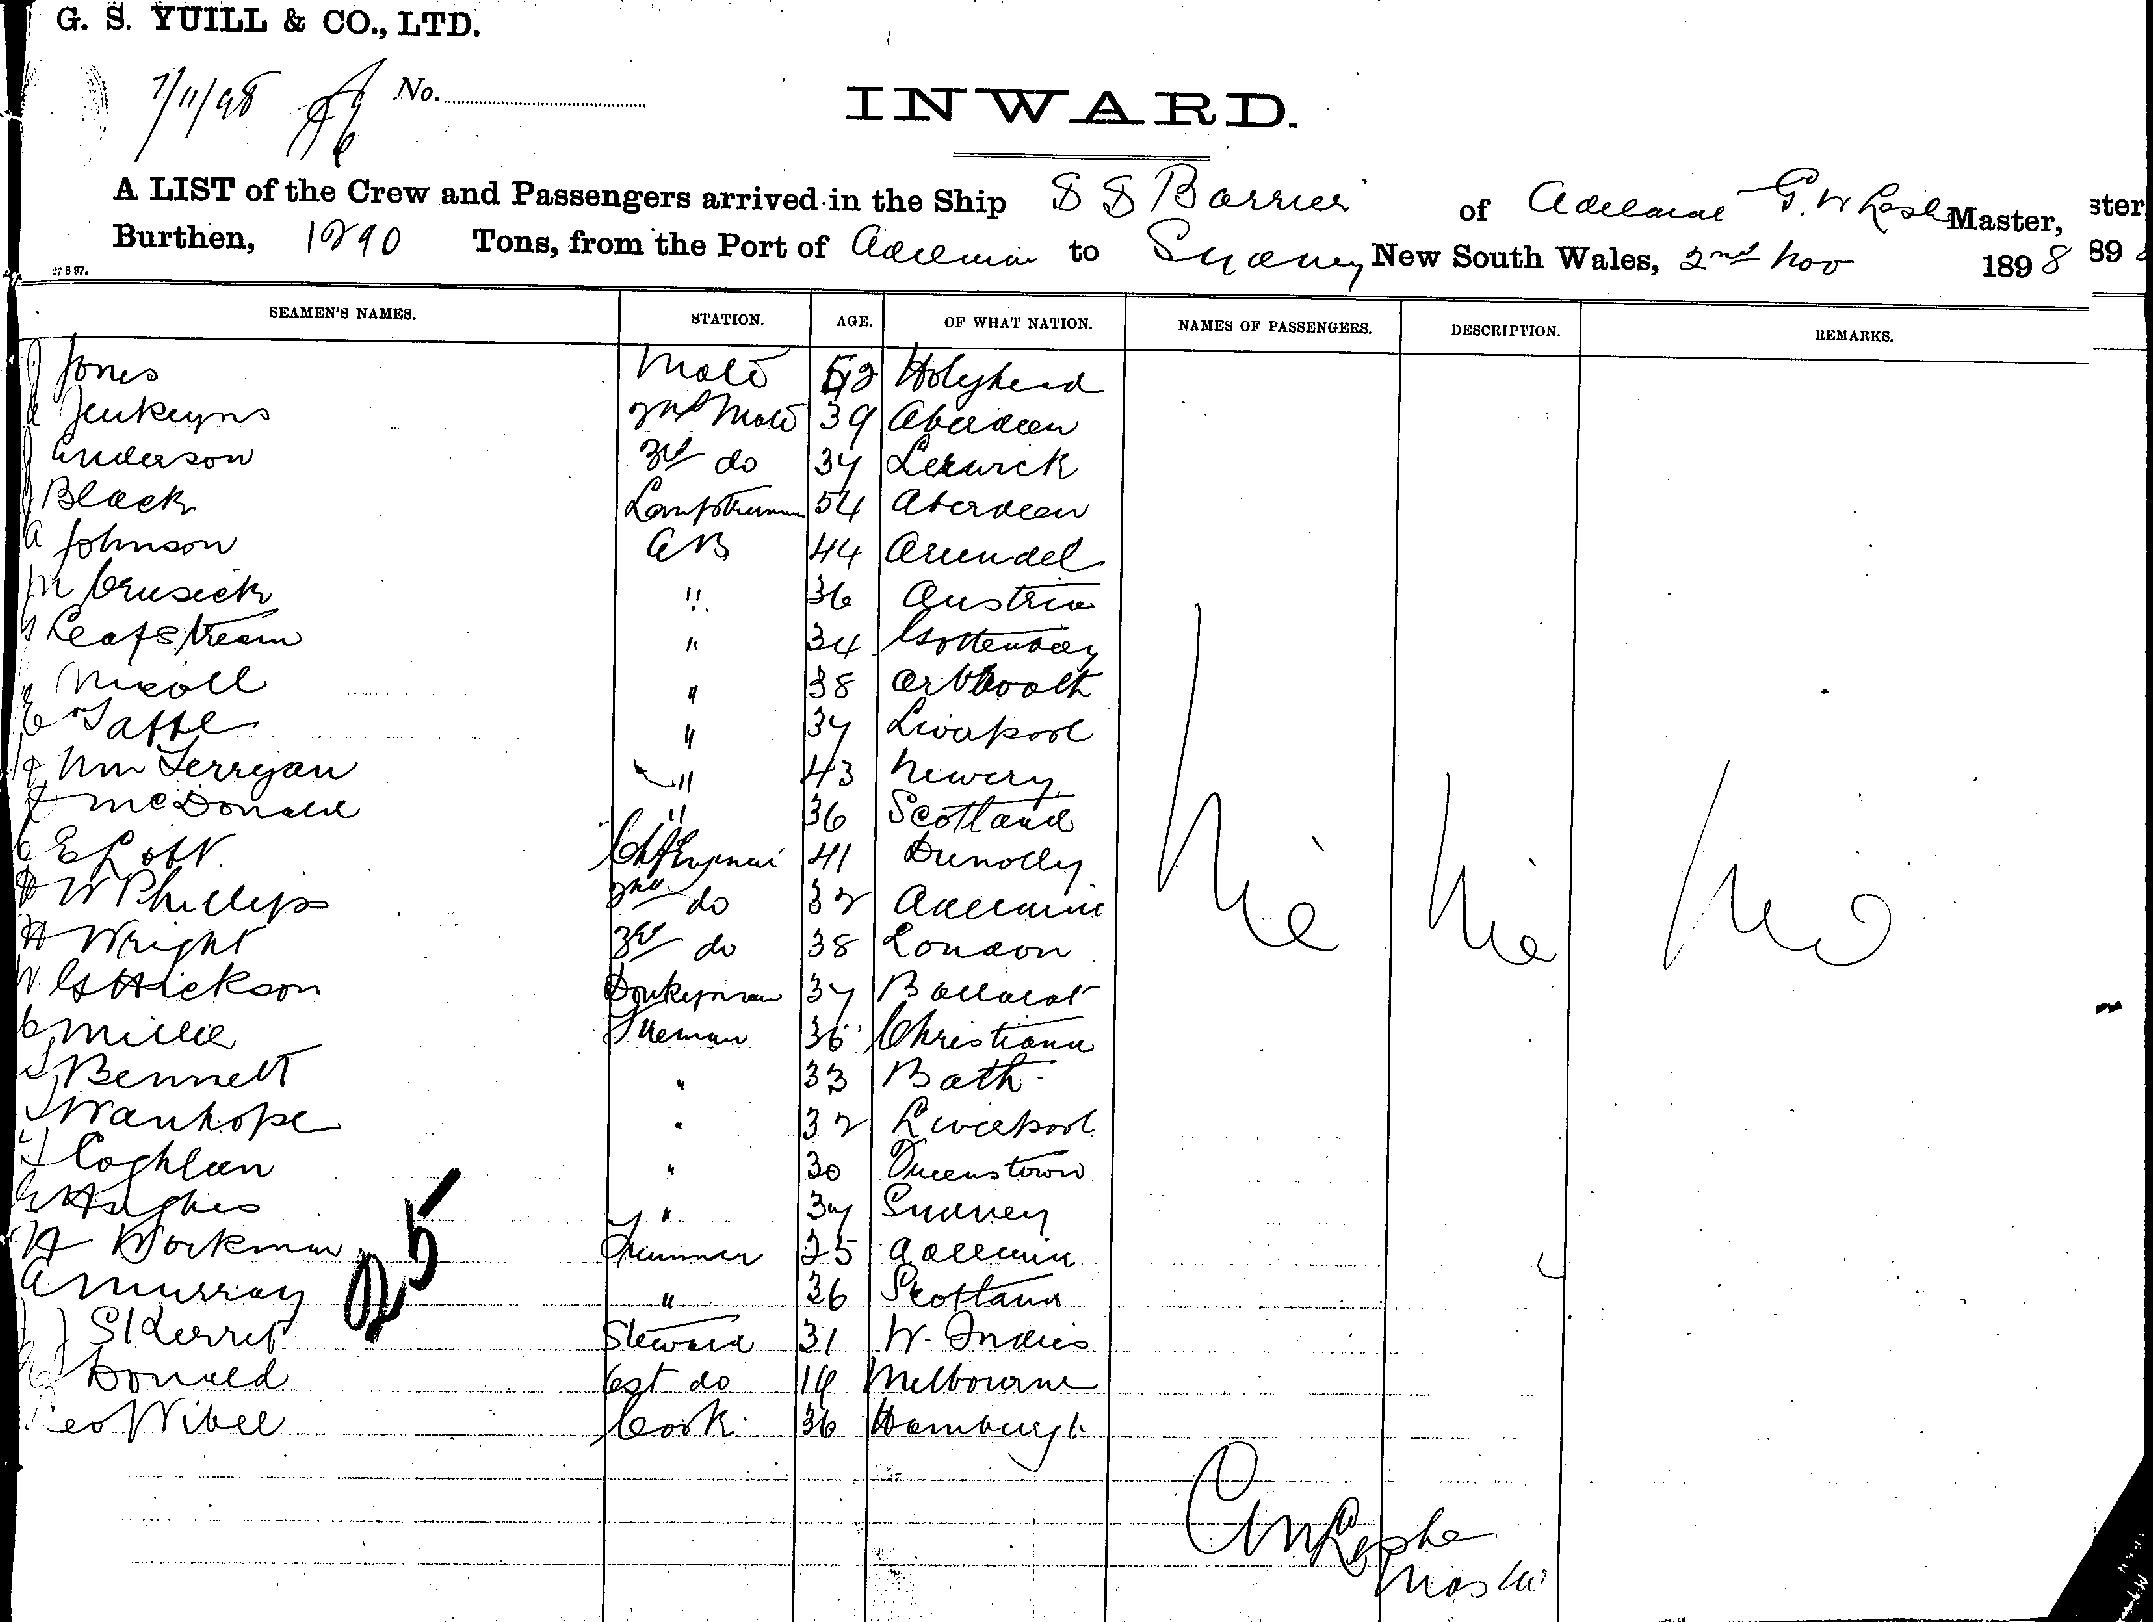 G. S. YUILL & CO., LTD.
7/11/98 No.
INWARD.
A LIST of the Crew and Passengers arrived in the Ship S S Barrier of Adelaide G. W Leslie Master,
Burthen, 1290 Tons, from the Port of Adelaide to Sydney New South Wales, 2nd Nov 1898
SEAMEN'S NAMES. STATION. AGE. OF WHAT NATION. NAMES OF PASSENGERS. DESCRIPTION. REMARKS.
J Jones Mate 52 Holyhead
Jenkeyns 2nd Mate 39 Aberdeen
J Anderson 3rd do 37 Lerwick
J Black Lamptrimmer 54 Aberdeen
A Johnson AB 44 Arundel
M Crusick " 36 Austria
Leafstream " 34 Gottenburg
Nicoll " 38 Arbroath
E Taffe " 37 Liverpool
Wm Ferryan " 43 Newery
McDonald " 36 Scotland
E Lott Ch Engineer 41 Dunolly
W Phillips 2nd do 32 Adelaide
H Wright 3rd do 38 London
W G Hickson Donkeyman 37 Ballarat
C Miller Fireman 36 Christiana
Bennett " 33 Bath
Wanhope " 32 Liverpool
Coghlan " 30 Queenstown
Hughes " 37 Sydney
H Workman Trimmer 25 Adelaide
A Murray " 36 Scotland
J Skerret Steward 31 W. Indies
Donald ast do 16 Melbourne
Geo Wibel Cook 36 Hamburgh
Nil Nil Nil
25
G W Leslie
Master